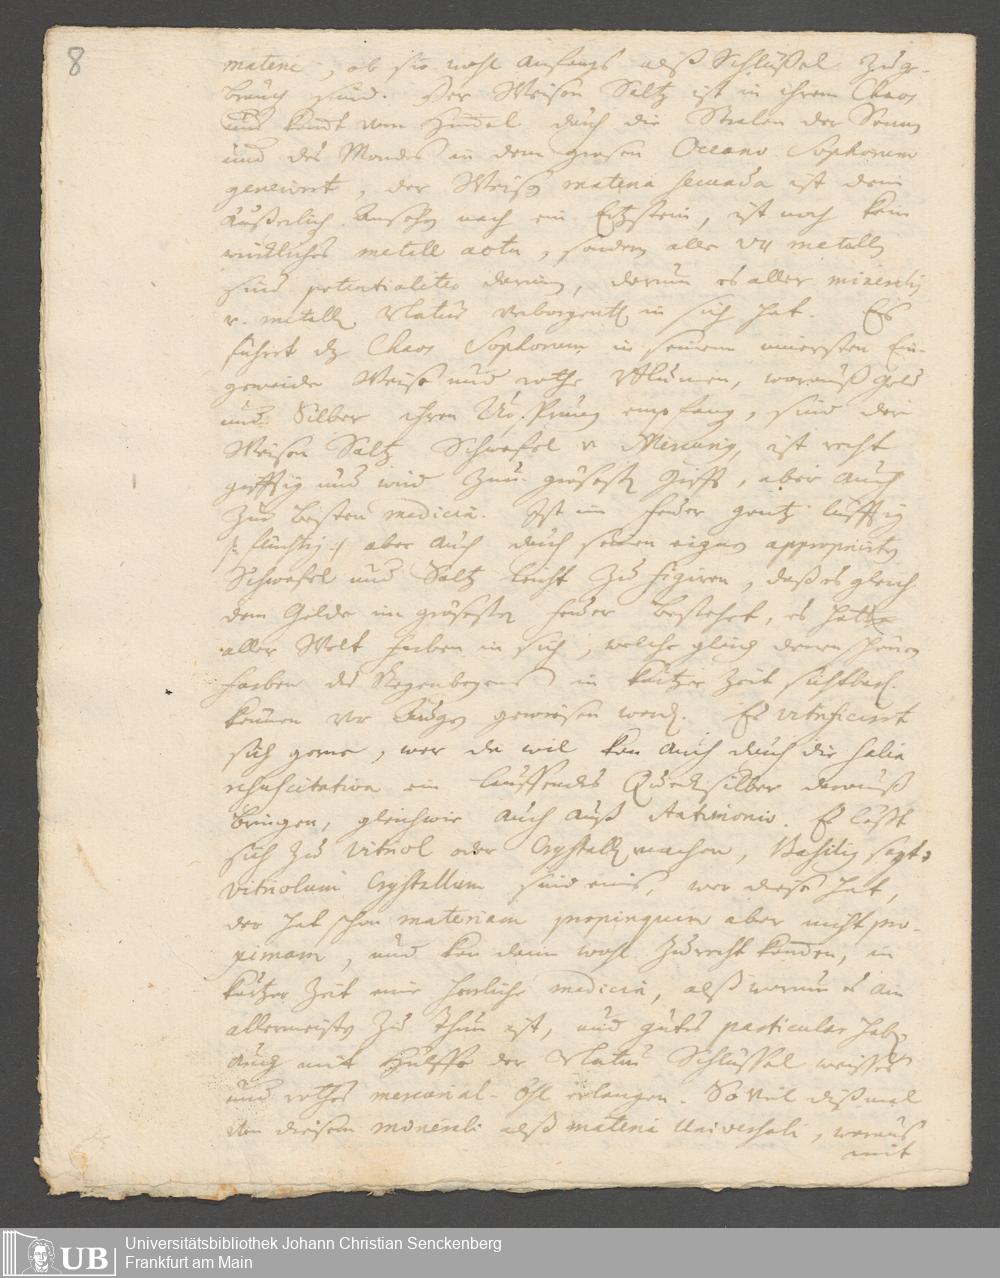 8
materie, ob sie wohl anfangs alß Schlüßel zu ge-
brauch sind. Der Weisen Saltz ist in ihrem Chaos
und komt vom Himel durch die Stralen der Sonn
und des Mondes in dem grosen Oceano Sophorum
generirt, der Weiß materia secunda ist dem
äußerlich Ansehn nach ein Ertzstein, ist noch kein
würkliches metall actu, sondern alle VII metalle
sind potentialiter darinn, darum es aller mineralij
v. metall Natur verborgentl in sich hat. Es
führet dz Chaos Sophorum in seinem innersten Ein-
geweide Weise und rothe Blumen, woraus Gold
und Silber ihren Ursprung empfang, sind der
Weisen Saltz Schwefel v Mercurij, ist recht
gifftig und wird zum grösesten Gifft, aber auch
zur besten medicin. Ist im feuer gantz lufftig
/: flüchtig :/ aber auch durch seinen eignen appropriirten
Schwefel und Saltz leicht zu figiren, daß es gleich
dem Golde im grösesten feuer bestehet, es hat
aller Welt farben in sich, welche gleich denen schönen
farben des Regenbogens in kurtzer Zeit sichtbarl.
können vor Augen gewiesen werd. Es vitrificirt
sich gerne, wer da wil kan auch durch die salia
resuscitativa ein lauffendes Quecksilber daraus
bringen, gleichwie auch auß Antimonio. Es läßt
sich zu Vitriol oder Crystall machen, Basilij sagt:
Vitriolum Crystallum sind eins, wer diese hat,
der hat schon materiam propinquam aber nicht pro-
ximam, und kan dann wohl zurecht komen, in
kurtzer Zeit eine herrliche medicin, alß worum es am
allermeisten zu thun ist, und gutes particular hab,
auch mit Hülffe der Natur Schlüssel weisses
und rothes mercurial-öhl erlangen. So viel dißmal
von diesem minerali alß materia Universali, woraus
mit
UB
Universitätsbibliothek Johann Christian Senckenberg
Frankfurt am Main